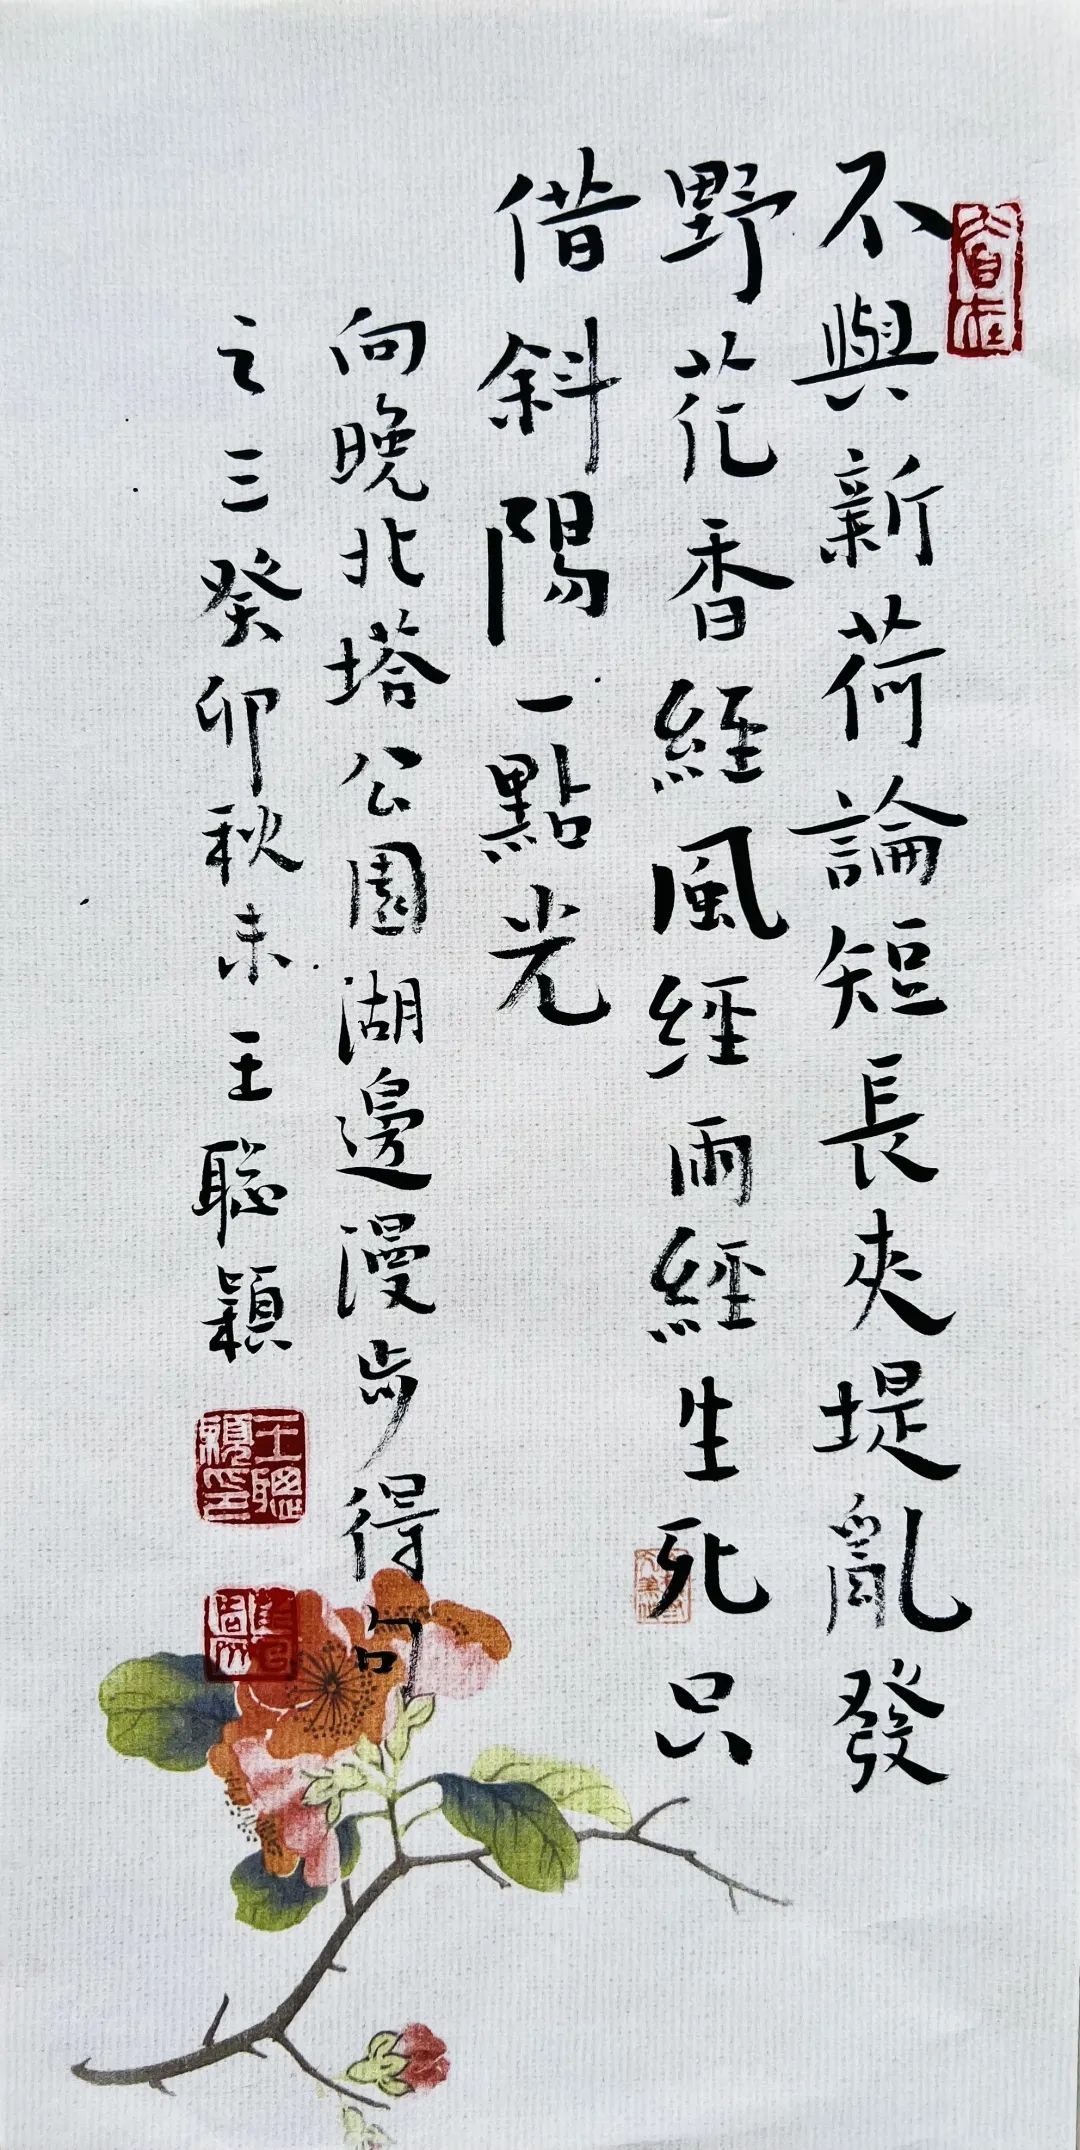 不與新荷論短長夾堤亂發
野花香經風經雨經生死只
借斜陽一點光
向晚北塔公園湖邊漫步得句
之三癸卯秋末王聰穎
王聰穎印